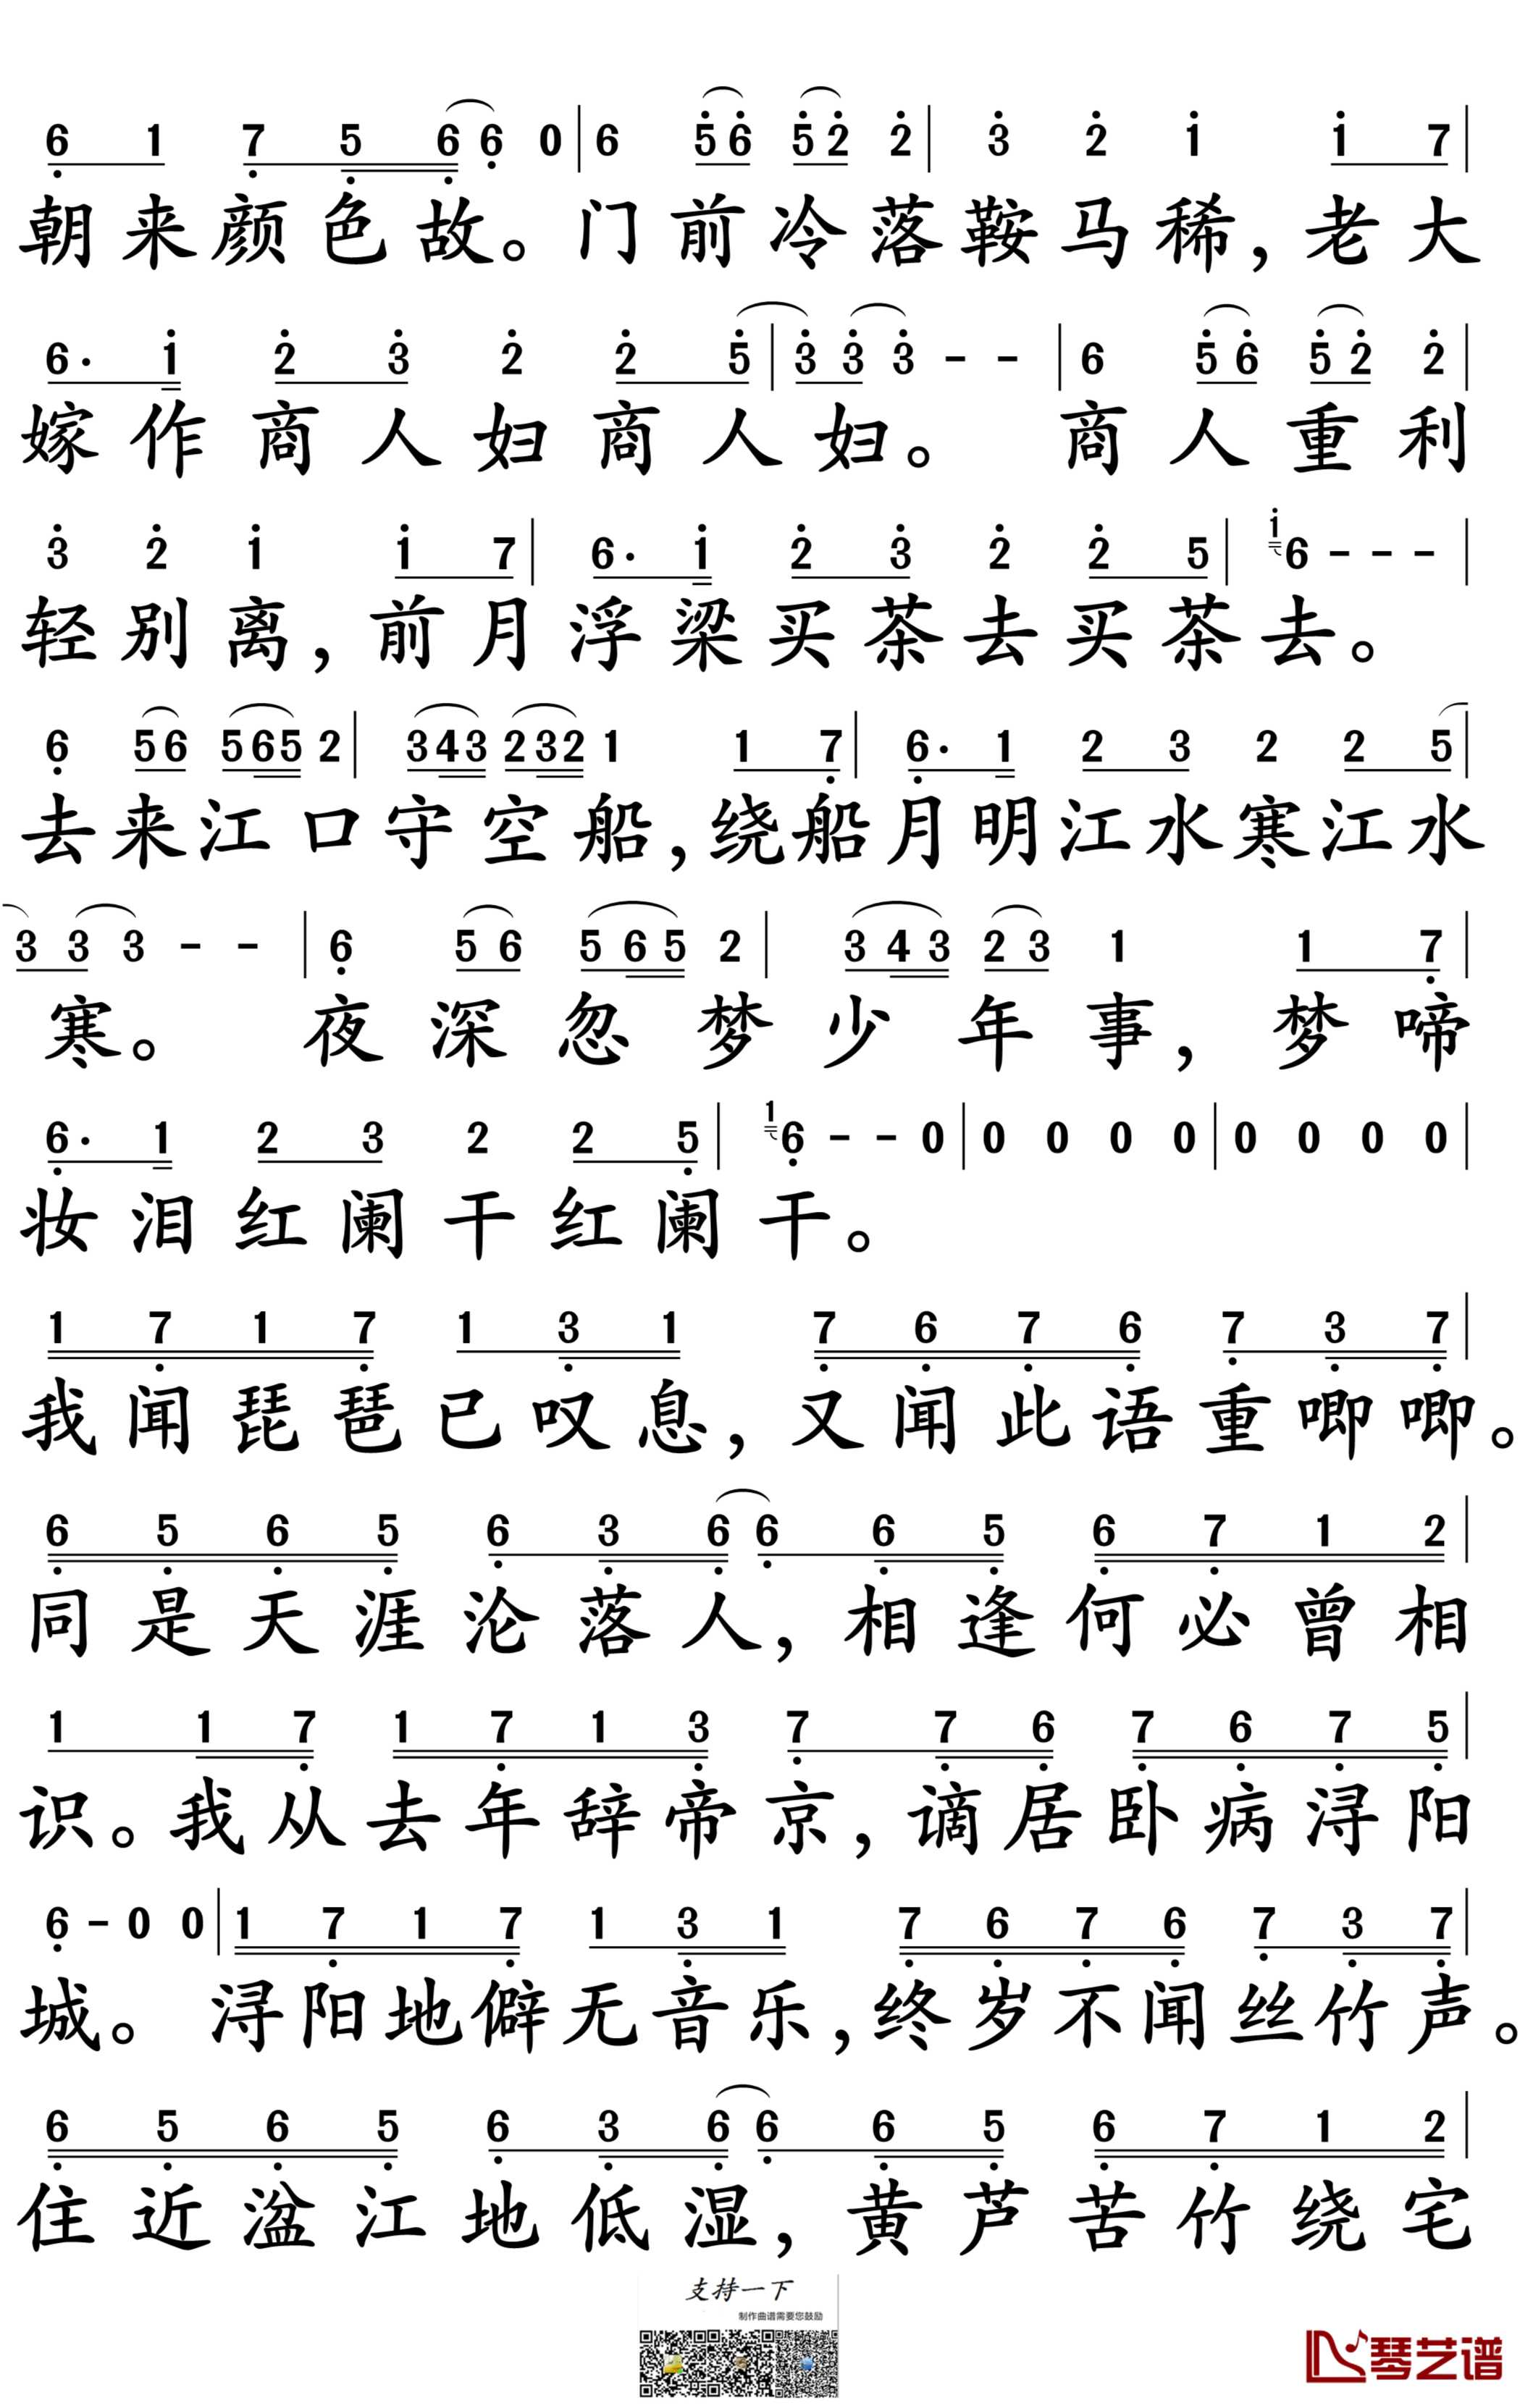 6 1 7 5 6 6 0 | 6 5 6 5 2 2 | 3 2 1 1 7 |
朝来颜色故。门前冷落鞍马稀，老大
6· 1 2 3 2 2 5 | 3 3 3 - - | 6 5 6 5 2 2 |
嫁作商人妇商人妇。商人重利
3 2 1 1 7 | 6· 1 2 3 2 2 5 | 1 6 - - - |
轻别离，前月浮梁买茶去买茶去。
6 5 6 5 6 5 2 | 3 4 3 2 3 2 1 1 7 | 6· 1 2 3 2 2 5 |
去来江口守空船，绕船月明江水寒江水
3 3 3 - - | 6 5 6 5 6 5 2 | 3 4 3 2 3 1 1 7 |
寒。夜深忽梦少年事，梦啼
6· 1 2 3 2 2 5 | 1 6 - - 0 | 0 0 0 0 | 0 0 0 0 |
妆泪红阑干红阑干。
1 7 1 7 1 3 1 7 6 7 6 7 3 7 |
我闻琵琶已叹息，又闻此语重唧唧。
6 5 6 5 6 3 6 6 6 5 6 7 1 2 |
同是天涯沦落人，相逢何必曾相
1 1 7 1 7 1 3 7 7 6 7 6 7 5 |
识。我从去年辞帝京，谪居卧病浔阳
6 - 0 0 | 1 7 1 7 1 3 1 7 6 7 6 7 3 7 |
城。浔阳地僻无音乐，终岁不闻丝竹声。
6 5 6 5 6 3 6 6 6 5 6 7 1 2 |
住近湓江地低湿，黄芦苦竹绕宅
支持一下
制作曲谱需要您鼓励
琴艺谱